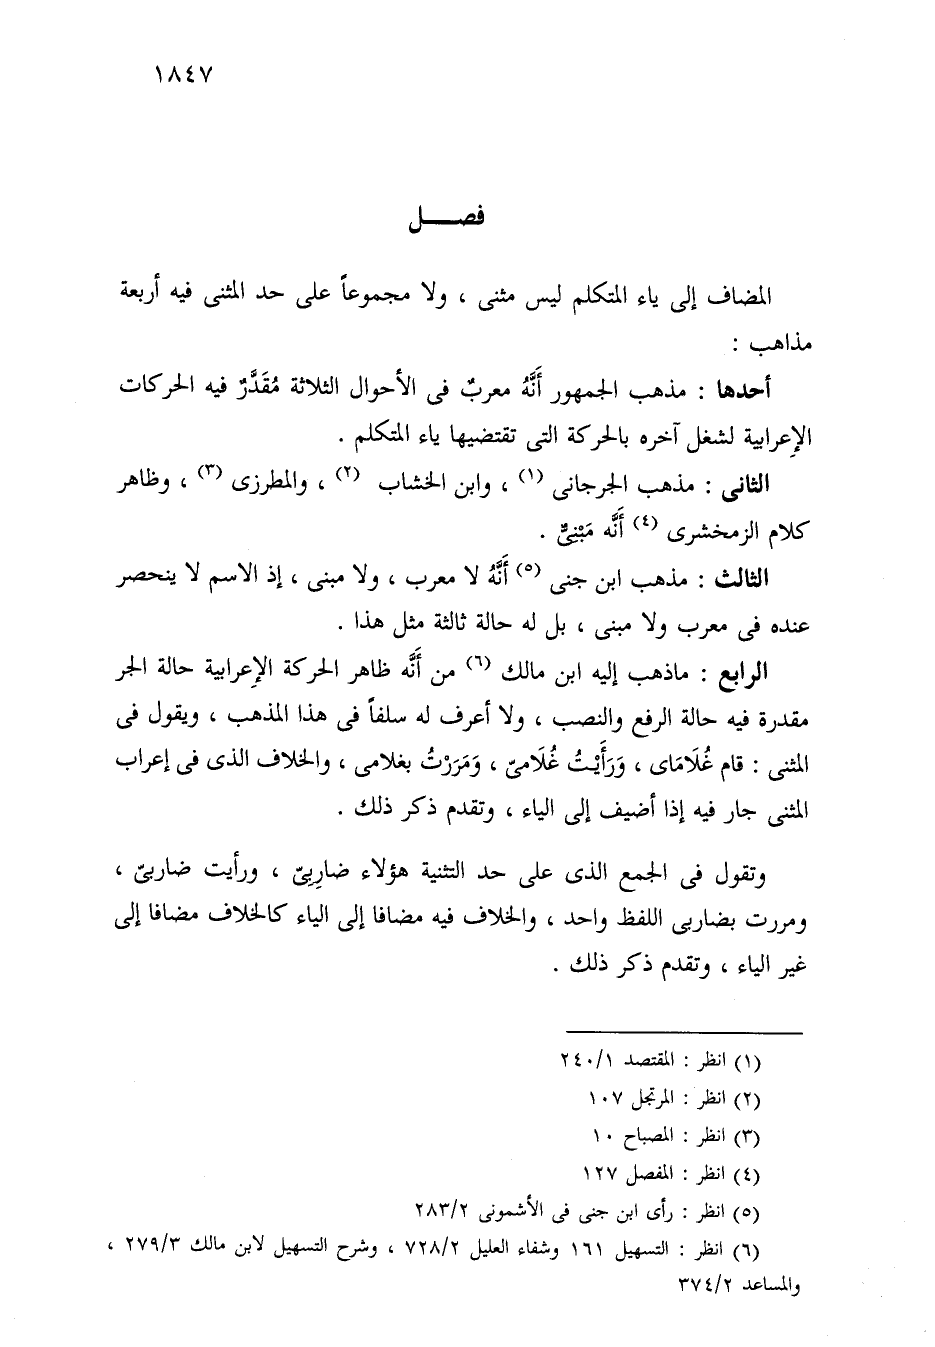 ١٨٤٧
فصـــل
المضاف إلى ياء المتكلم ليس مثنى ، ولا مجموعاً على حد المثنى فيه أربعة
مذاهب :
أحدها : مذهب الجمهور أَنَّهُ معربٌ فى الأحوال الثلاثة مُقَدَّرٌ فيه الحركات
الإِعرابية لشغل آخره بالحركة التى تقتضيها ياء المتكلم .
الثانى : مذهب الجرجانى (١) ، وابن الخشاب (٢) ، والمطرزى (٣) ، وظاهر
كلام الزمخشرى (٤) أَنَّه مَبْنِىٌّ .
الثالث : مذهب ابن جنى (٥) أَنَّهُ لا معرب ، ولا مبنى ، إذ الاسم لا ينحصر
عنده فى معرب ولا مبنى ، بل له حالة ثالثة مثل هذا .
الرابع : ماذهب إليه ابن مالك (٦) من أَنَّه ظاهر الحركة الإِعرابية حالة الجر
مقدرة فيه حالة الرفع والنصب ، ولا أعرف له سلفاً فى هذا المذهب ، ويقول فى
المثنى : قام غُلَامَاى ، وَرَأَيْتُ غُلَامىّ ، وَمَرَرْتُ بغلامى ، والخلاف الذى فى إعراب
المثنى جار فيه إذا أضيف إلى الياء ، وتقدم ذكر ذلك .
وتقول فى الجمع الذى على حد التثنية هؤلاء ضارِبِىّ ، ورأيت ضاربىّ ،
ومررت بضاربى اللفظ واحد ، والخلاف فيه مضافا إلى الياء كالخلاف مضافا إلى
غير الياء ، وتقدم ذكر ذلك .
(١) انظر : المقتصد ٢٤٠/١
(٢) انظر : المرتجل ١٠٧
(٣) انظر : المصباح ١٠
(٤) انظر : المفصل ١٢٧
(٥) انظر : رأى ابن جنى فى الأشمونى ٢٨٣/٢
(٦) انظر : التسهيل ١٦١ وشفاء العليل ٧٢٨/٢ ، وشرح التسهيل لابن مالك ٢٧٩/٣ ،
والمساعد ٣٧٤/٢